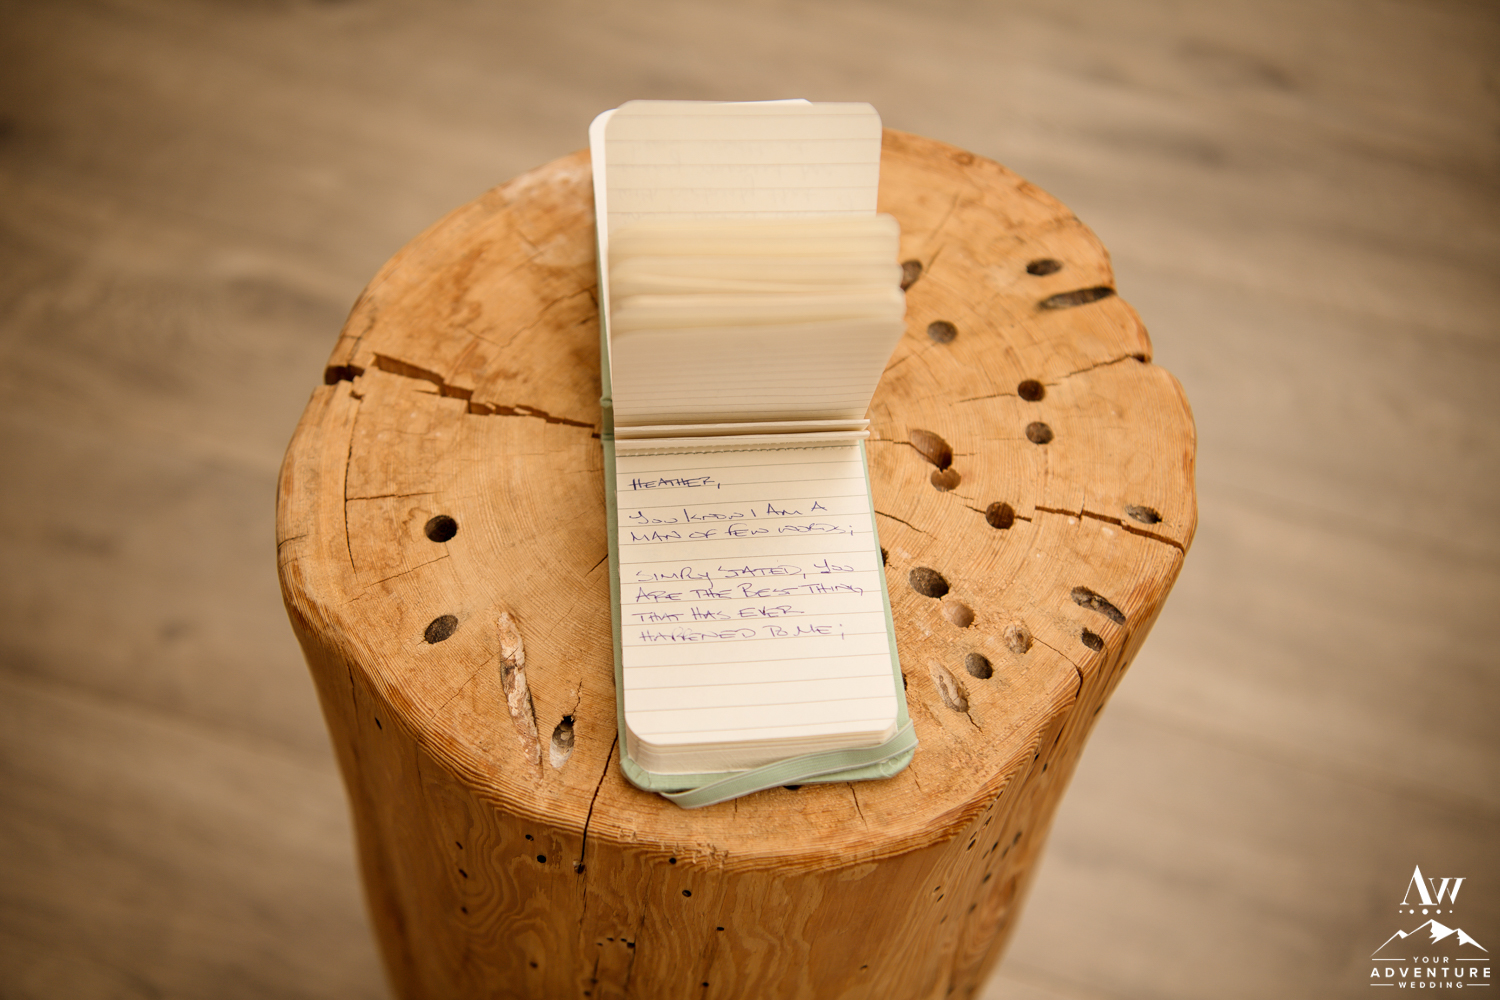 HEATHER,
YOU KNOW I AM A
MAN OF FEW WORDS;
SIMPLY STATED, YOU
ARE THE BEST THING
THAT HAS EVER
HAPPENED TO ME;
AW
YOUR
ADVENTURE
WEDDING